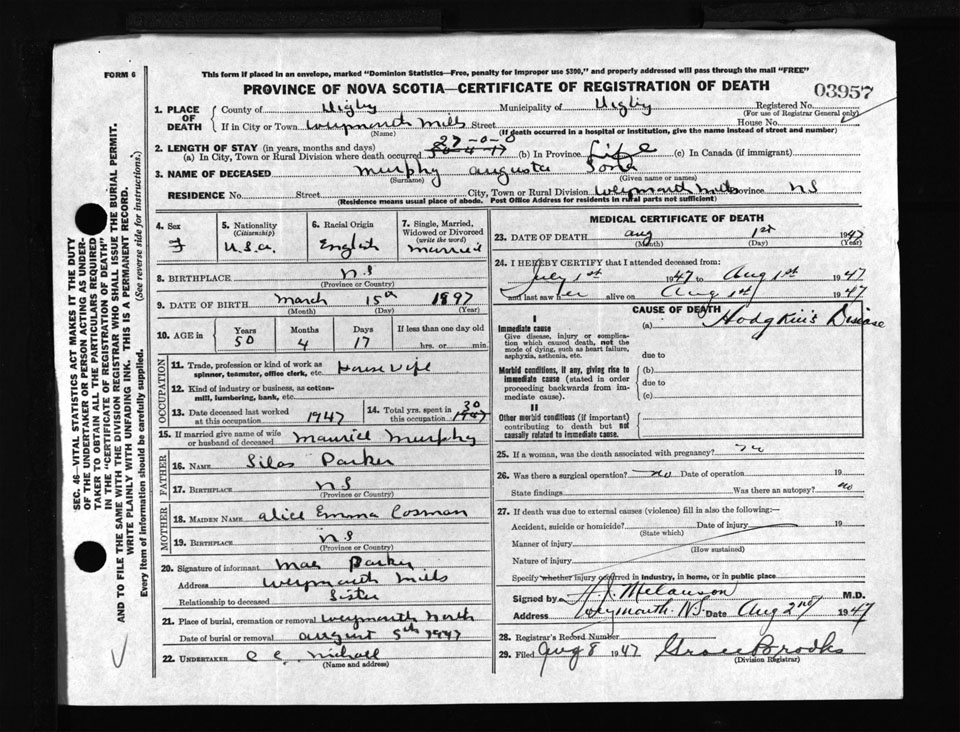 FORM 6
This form if placed in an envelope, marked "Dominion Statistics—Free, penalty for improper use $300," and properly addressed will pass through the mail "FREE"
PROVINCE OF NOVA SCOTIA—CERTIFICATE OF REGISTRATION OF DEATH
03957
1. PLACE OF DEATH County of Digby Municipality of Digby Registered No.
(For use of Registrar General only)
If in City or Town Weymouth Mills Street House No.
(Name) (If death occurred in a hospital or institution, give the name instead of street and number)
2. LENGTH OF STAY (in years, months and days) 27-0-0
(a) In City, Town or Rural Division where death occurred 50-4-17 (b) In Province Life (c) In Canada (if immigrant)
3. NAME OF DECEASED Murphy Augusta
(Surname) (Given name or names)
RESIDENCE No. Street City, Town or Rural Division Weymouth Mills Province NS
(Residence means usual place of abode. Post Office Address for residents in rural parts not sufficient)
SEC. 46—VITAL STATISTICS ACT MAKES IT THE DUTY
OF THE UNDERTAKER OR PERSON ACTING AS UNDER-
TAKER TO OBTAIN ALL THE PARTICULARS REQUIRED
IN THE "CERTIFICATE OF REGISTRATION OF DEATH"
AND TO FILE THE SAME WITH THE DIVISION REGISTRAR WHO SHALL ISSUE THE BURIAL PERMIT.
WRITE PLAINLY WITH UNFADING INK. THIS IS A PERMANENT RECORD.
Every item of information should be carefully supplied. (See reverse side for instructions.)
4. Sex
F
5. Nationality
(Citizenship)
U.S.A.
6. Racial Origin
English
7. Single, Married,
Widowed or Divorced
(write the word)
Married
8. BIRTHPLACE N.S
(Province or Country)
9. DATE OF BIRTH March 15th 1897
(Month) (Day) (Year)
10. AGE in Years Months Days If less than one day old
50 4 17 hrs. or min.
OCCUPATION
11. Trade, profession or kind of work as
spinner, teamster, office clerk, etc. House Wife
12. Kind of industry or business, as cotton-
mill, lumbering, bank, etc.
13. Date deceased last worked
at this occupation 1947
14. Total yrs. spent in 30
this occupation 1947
15. If married give name of wife
or husband of deceased Mauriel Murphy
FATHER
16. NAME Silas Parker
17. BIRTHPLACE N S
(Province or Country)
MOTHER
18. MAIDEN NAME Alice Emma Cosman
19. BIRTHPLACE N.S
(Province or Country)
20. Signature of informant Mae Parker
Address Weymouth Mills
Relationship to deceased Sister
21. Place of burial, cremation or removal Weymouth North
Date of burial or removal August 5th 1947
22. UNDERTAKER C C. Nichall
(Name and address)
MEDICAL CERTIFICATE OF DEATH
23. DATE OF DEATH Aug 1st 1947
(Month) (Day) (Year)
24. I HEREBY CERTIFY that I attended deceased from:
July 1st 1947 to Aug 1st 1947
and last saw her alive on Aug 1st 1947
CAUSE OF DEATH
I
Immediate cause
Give disease, injury or complica-
tion which caused death, not the
mode of dying, such as heart failure,
asphyxia, asthenia, etc.
(a) Hodgkin's Disease
due to
Morbid conditions, if any, giving rise to
immediate cause (stated in order
proceeding backwards from im-
mediate cause).
(b)
due to
(c)
II
Other morbid conditions (if important)
contributing to death but not
causally related to immediate cause.
25. If a woman, was the death associated with pregnancy? no
26. Was there a surgical operation? no Date of operation 19
State findings Was there an autopsy? no
27. If death was due to external causes (violence) fill in also the following:—
Accident, suicide or homicide? Date of injury 19
(State which)
Manner of injury
(How sustained)
Nature of injury
Specify whether injury occurred in industry, in home, or in public place
Signed by M.D.
Address Weymouth. N.S. Date Aug 2nd 1947
28. Registrar's Record Number
29. Filed Aug 8 1947 Grace Brooks
(Division Registrar)